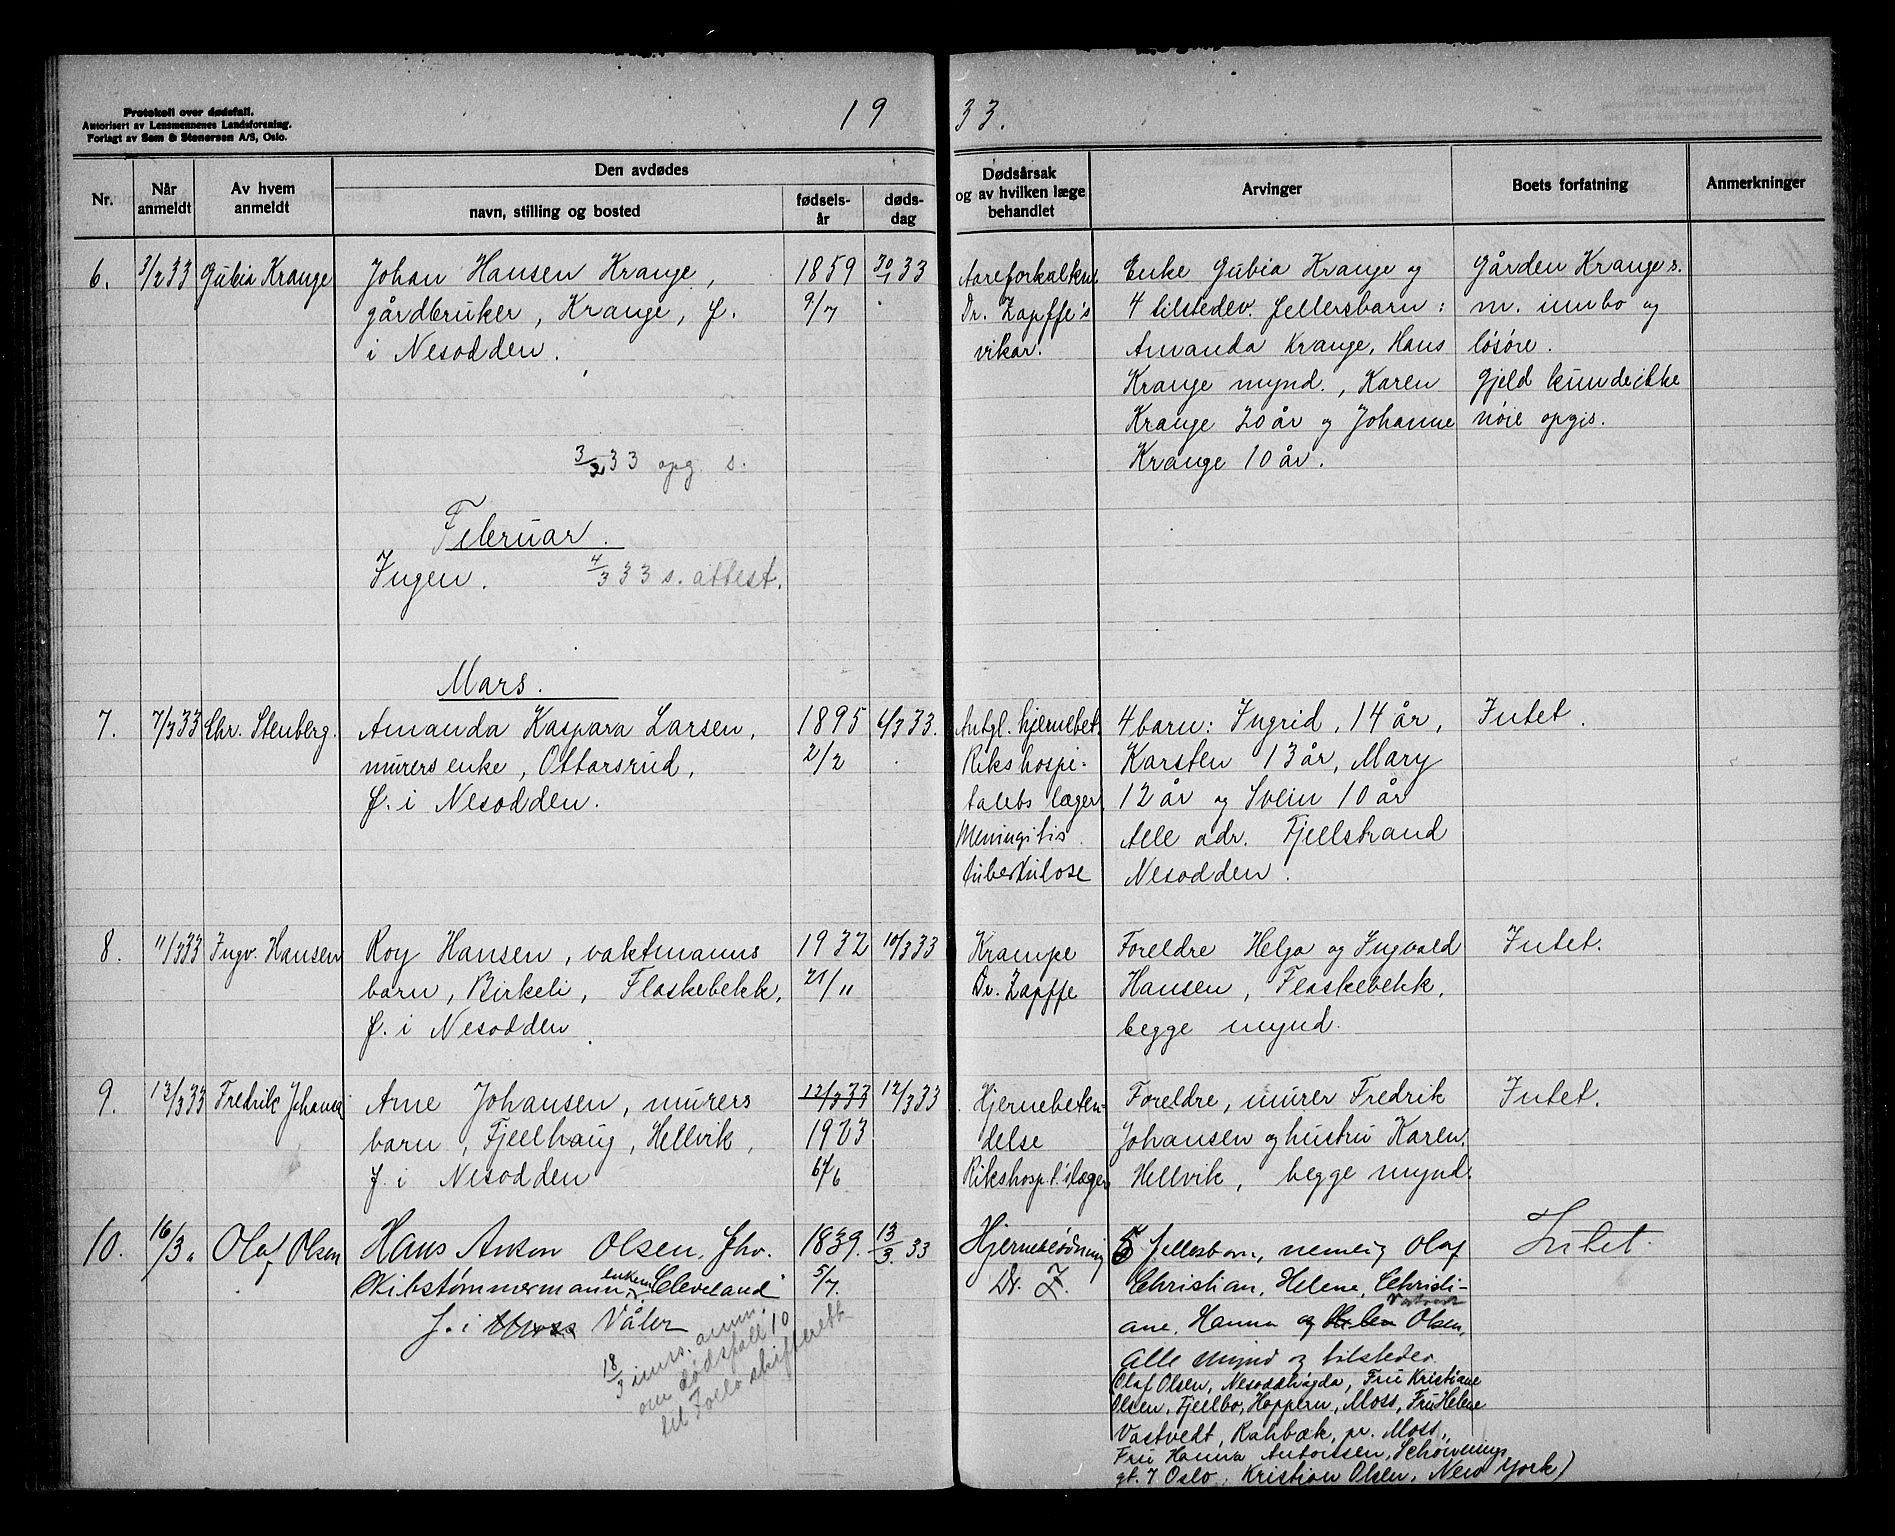 Protokoll over dødsfall.
Autorisert av Lensmennenes Landsforening.
Forlagt av Sem & Stenersen A/S, Oslo.
19 33.
Nr.
Når anmeldt
Av hvem anmeldt
Den avdødes
navn, stilling og bosted
fødselsår
dødsdag
Dødsårsak og av hvilken læge behandlet
Arvinger
Boets forfatning
Anmerkninger
6.
3/2 33
Gubia Krange
Johan Hansen Krange,
gårdbruker, Krange, f.
i Nesodden.
1859
9/7
30/1 33
Dr. Zapffe's
vikar.
Enke Gubia Krange og
4 tilstedev. fellersbarn:
Amanda Krange, Hans
Krange mynd., Karen
Krange 20 år og Johanne
Krange 10 år.
Gården Krange s.
m. innbo og
løsøre.
Gjeld kunde ikke
nøie opgis.
3/2 33 opg. s.
Februar.
Ingen. 4/3 33 s. attest.
Mars.
7.
7/3 33
Chr. Stenberg.
Amanda Kaspara Larsen,
murers enke, Ottarsrud,
f. i Nesodden.
1895
2/2
6/3 33.
hjernebet.
Rikshospi-
talets læger.
Meningitis
tuberkulose
4 barn: Ingrid, 14 år,
Karsten 13 år, Mary
12 år og Svein 10 år
Alle adr. Fjellstrand
Nesodden.
Intet.
8.
11/3 33
Ingv. Hansen
Roy Hansen, vaktmanns
barn, Birkeli, Flaskebekk,
f. i Nesodden.
1932
21/11
10/3 33
Krampe
Dr. Zapffe
Foreldre Helga og Ingvald
Hansen, Flaskebekk,
begge mynd.
Intet.
9.
13/3 33
Fredrik Johansen
Arne Johansen, murers
barn, Fjellhaug, Hellvik,
f. i Nesodden
12/3 33
1923
12/3 33
Hjernebeten-
delse
Rikshosp.t's læger
Foreldre, murer Fredrik
Johansen og hustru Karen,
Hellvik, begge mynd.
Intet.
10.
16/3.
Olaf Olsen
Hans Anton Olsen, fhv.
skibstømmermann, enkem. "Cleveland"
f. i Moss Våler
1839.
5/7.
13/3. 33
Hjerneblødning
Dr. Z.
5 fellesbarn, nemlig Olaf
Christian, Helene, Christi-
Vastvedt
ane, Hanna og Helen Olsen,
Alle mynd og tilsteder
Olaf Olsen, Nesoddtangda, Fru Kristiane
Olsen, Fjellbo, Hoppern, Moss, Fru Helene
Vastvedt, Rahbæk, pr. Moss,
Fru Hanna Antonsen, Schønnings
gt. 7 Oslo, Kristian Olsen, New York)
Intet.
18/3 inns. anm.
om dødsfall 10
til Follo skifterett